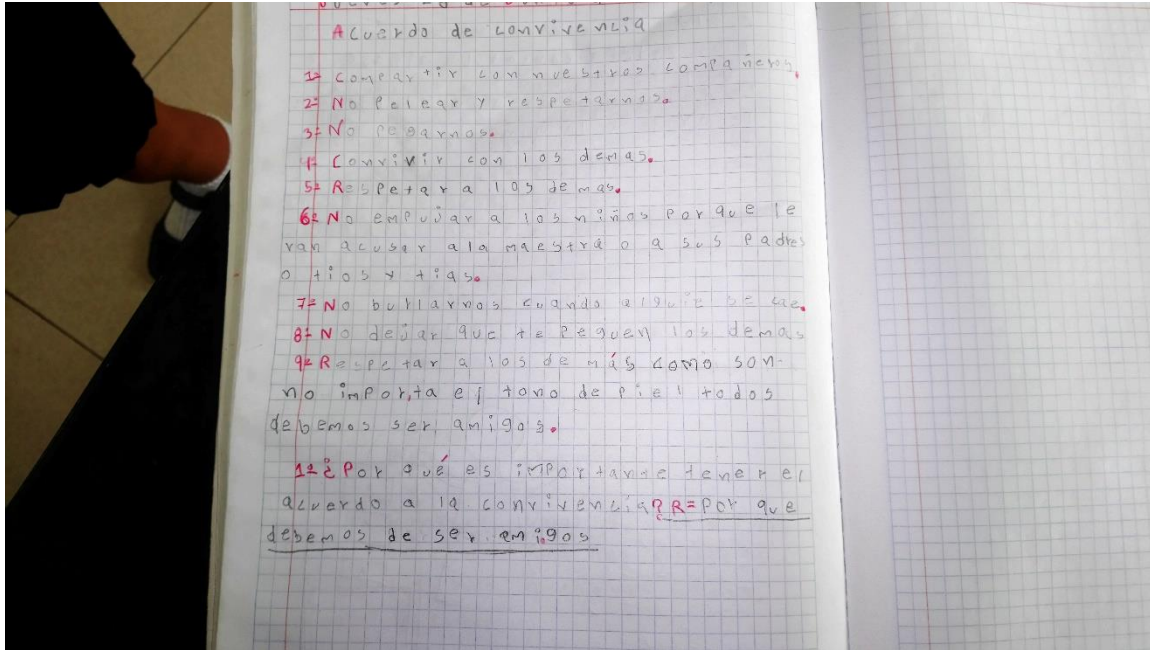 Acuerdo de convivencia
1= Compartir con nuestros compañeros.
2= No Pelear y respetarnos.
3= No Pegarnos.
4= Convivir con los demas.
5= Respetar a los demas.
6= No empujar a los niños Por que le
van acusar ala maestra o a sus Padres
o tios y tias.
7= No burlarnos cuando alguie se cae.
8= No dejar que te Peguen los demas
9= Respetar a los demás como son.
no importa el tono de Piel todos
debemos ser amigos.
1= ¿Por qué es importante tener el
acuerdo a la convivencia? R= Por que
debemos de ser amigos